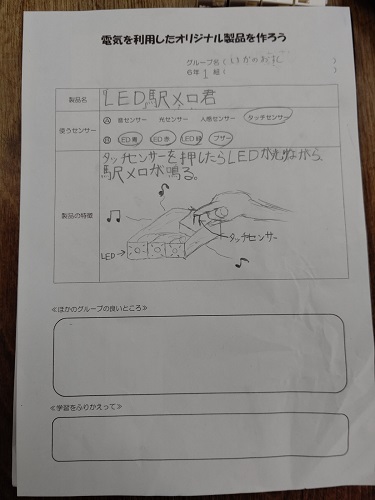 電気を利用したオリジナル製品を作ろう
グループ名(　　　)
6年 1 組(　　　)
製品名
LED駅メロ君
使うセンサー
Ⓐ 音センサー 光センサー 人感センサー タッチセンサー
Ⓑ LED青 LED赤 LED緑 ブザー
製品の特徴
タッチセンサーを押したらLEDが光ながら、
駅メロが鳴る。
タッチセンサー
LED→
≪ほかのグループの良いところ≫
≪学習をふりかえって≫